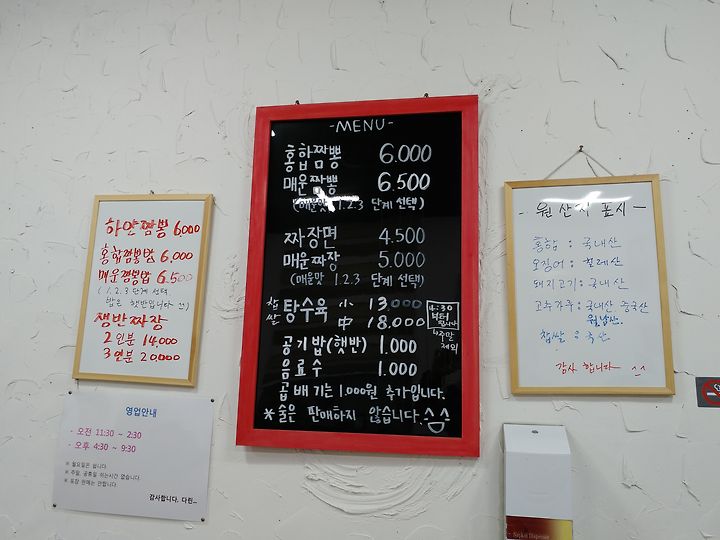 하얀짬뽕 6000
홍합짬뽕밥 6,000
매운짬뽕밥 6.500
(1.2.3 단계 선택
밥은 햇반입니다 ^^)
쟁반짜장
2인분 14,000
3인분 20,000
영업안내
- 오전 11:30 ~ 2:30
- 오후 4:30 ~ 9:30
※ 월요일은 쉽니다.
※ 주말, 공휴일 쉬는시간 없습니다.
※ 포장 판매는 안합니다.
감사합니다. 다린...
-MENU-
홍합짬뽕 6.000
매운짬뽕 6.500
(매운맛 1.2.3 단계 선택)
짜장면 4.500
매운짜장 5.000
(매운맛 1.2.3 단계 선택)
찹쌀 탕수육 小 13.000
中 18.000
4:30
부터
됩니다
주말
제외
공기밥(햇반) 1.000
음료수 1.000
곱배기는 1.000원 추가입니다.
※술은 판매하지 않습니다.^^
- 원산지 표시 -
홍합 : 국내산
오징어 : 칠레산
돼지고기 : 국내산
고추가루 : 국내산 중국산
월남산.
찹쌀 : 국산
감사합니다 ^^